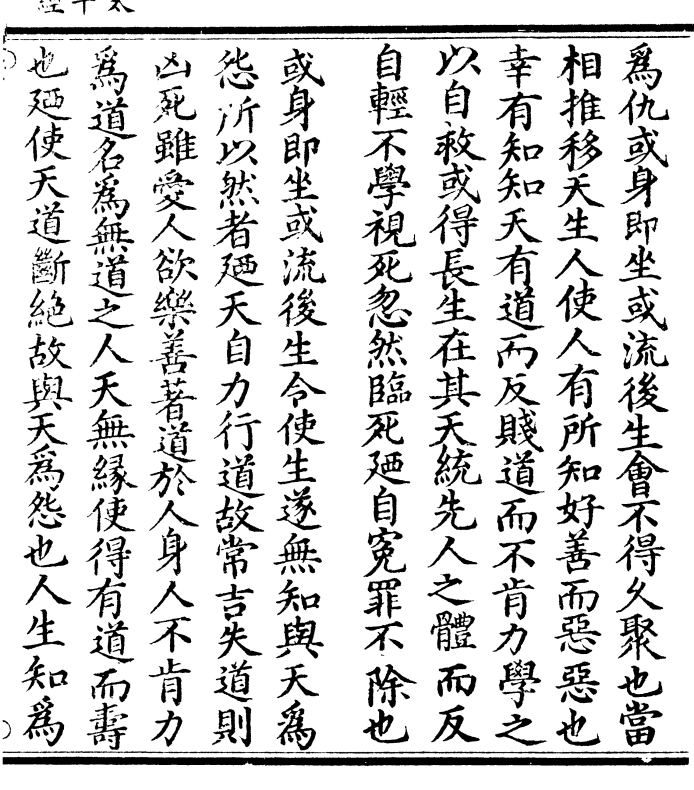 爲仇或身即坐或流後生會不得久聚也當
相推移天生人使人有所知好善而惡惡也
幸有知知天有道而反賤道而不肯力學之
以自救或得長生在其天統先人之體而反
自輕不學視死忽然臨死廼自寃罪不除也
或身即坐或流後生令使生遂無知與天爲
怨所以然者廼天自力行道故常吉失道則
凶死雖愛人欲樂善著道於人身人不肯力
爲道名爲無道之人天無緣使得有道而壽
也廼使天道斷絕故與天爲怨也人生知爲